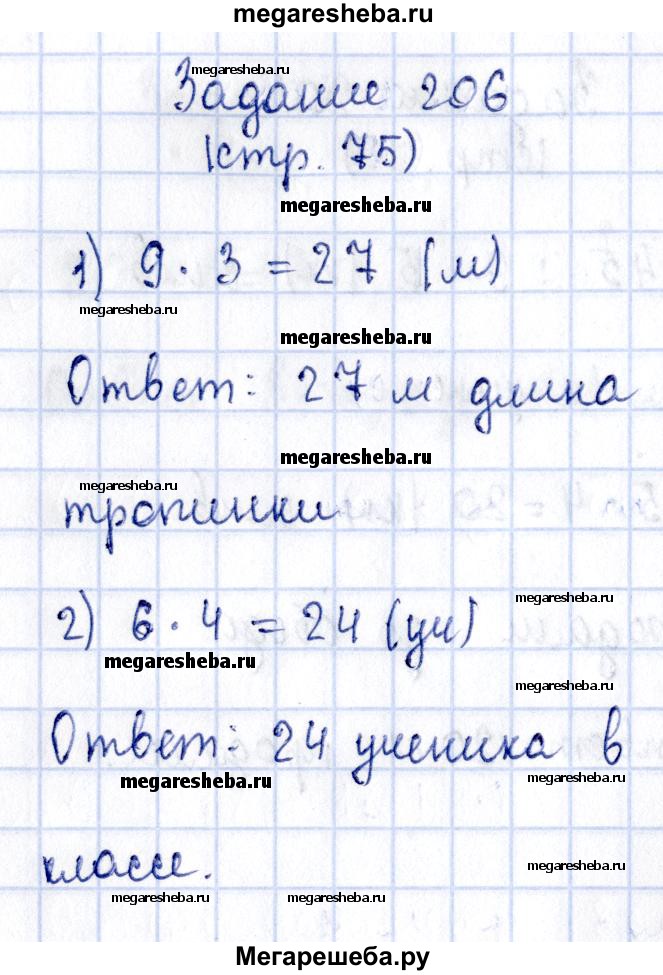 megaresheba.ru
megaresheba.ru
Задание 206
(стр. 75)
megaresheba.ru
1) 9 · 3 = 27 (м)
megaresheba.ru
megaresheba.ru
Ответ: 27 м длина
megaresheba.ru
megaresheba.ru
тропинки
megaresheba.ru
2) 6 · 4 = 24 (уч)
megaresheba.ru
megaresheba.ru
Ответ: 24 ученика в
megaresheba.ru
megaresheba.ru
классе.
megaresheba.ru
megaresheba.ru
megaresheba.ru
Мегарешеба.ру